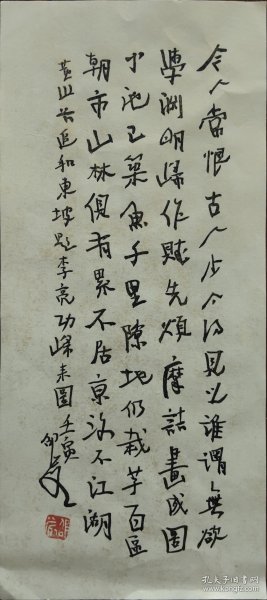 今人常恨古人少今得見之誰謂無欲
學淵明歸作賦先煩摩詰畫成圖
小池已築魚千里隙地仍栽芋百區
朝市山林俱有累不居京洛不江湖
黃山谷追和東坡題李亮功歸来圖壬寅
孔夫子旧书网